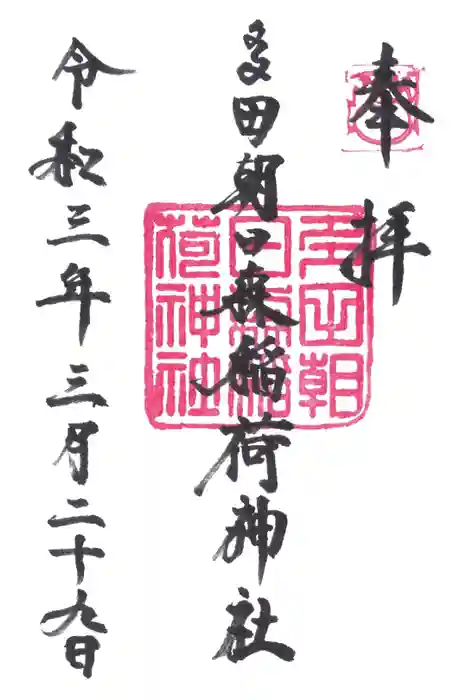 奉拝
多田朝日森稲荷神社
令和三年三月二十九日
多田朝
日森稲
荷神社